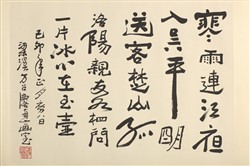 寒雨連江夜
入吳平明
送客楚山孤
洛陽親友如相問
一片冰心在玉壺
己卯年